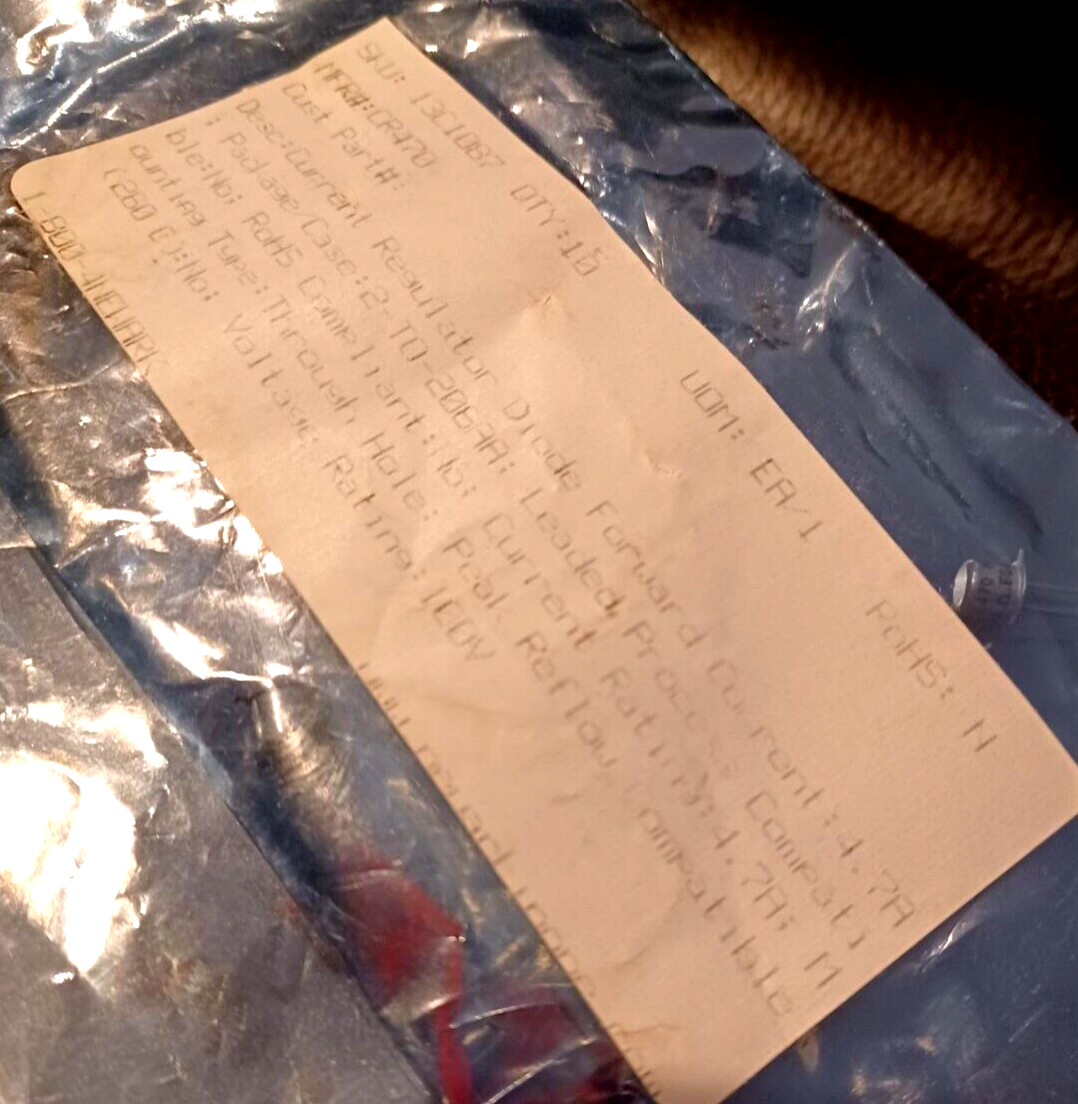 SKU: 13C1087 QTY:10 UOM: EA/1 RoHS: N
MFR#:CR470
Cust Part#:
Desc:Current Regulator Diode Forward Current:4.7A
; Package/Case:2-TO-206AA; Leaded Process Compati
ble:No; RoHS Compliant:No; Current Rating:4.7A; M
ounting Type:Through Hole; Peak Reflow Compatible
(260 C):No; Voltage Rating:100V
1-800-4NEWARK
470